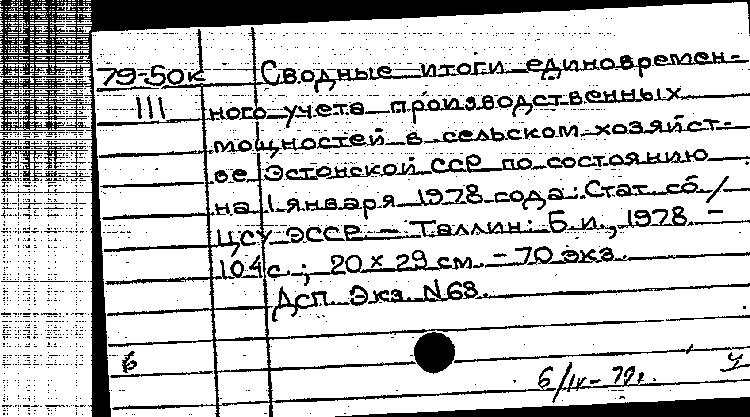 79-50к Сводные итоги единовремен-
III ного учета производственных
мощностей в сельском хозяйст-
ве Эстонской ССР по состоянию
на 1 января 1978 года: Стат. сб./
ЦСУ ЭССР. – Таллин: Б.и., 1978. –
104 с.; 20 x 29 см. – 70 экз.
Дсп. Экз. N 68.
6
6/IV – 79г.